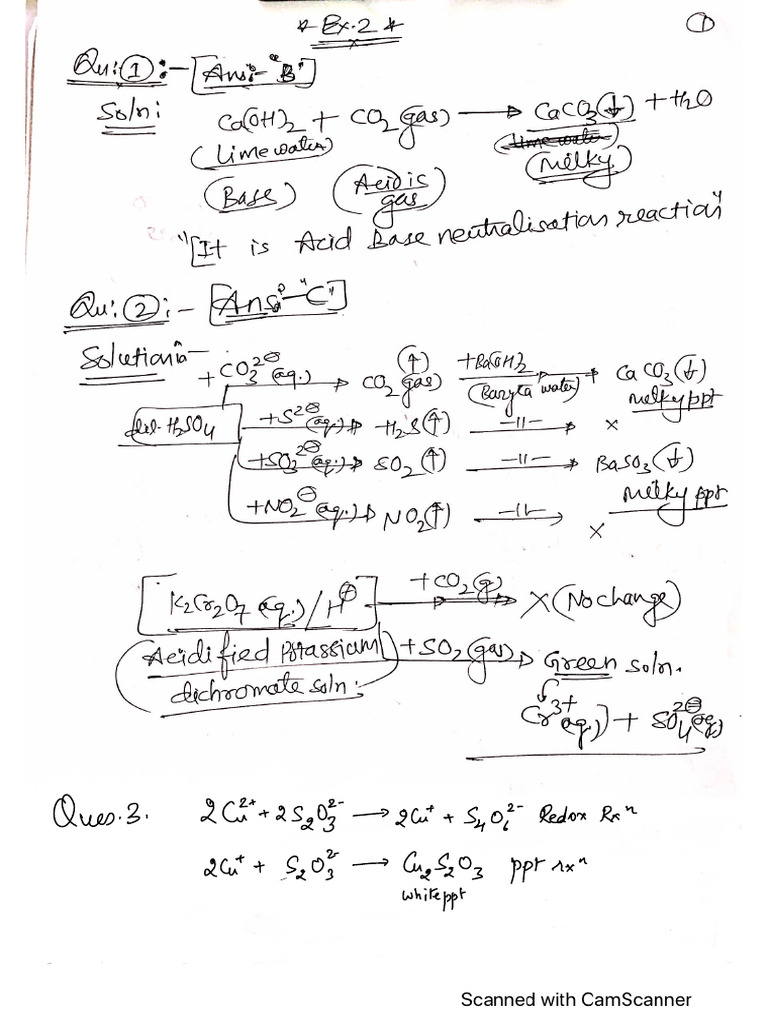 * Ex. 2 *
①
Qu: ① :- [Ans:- "B"]
Soln: Ca(OH)₂ + CO₂(gas) → CaCO₃(↓) + H₂O
(Lime water) (Lime water)
(Milky)
(Base) (Acidic gas)
"[It is Acid Base neutralisation reaction"
Qu: ② :- [Ans:- "C"]
Solution:-
+ CO₃²⊖(aq.) → CO₂(gas)(↑) +Ba(OH)₂ (Baryta water) → CaCO₃(↓)
milky ppt
dil. H₂SO₄ +S²⊖(aq.) → H₂S(↑) —11— → ×
+SO₃²⊖(aq.) → SO₂(↑) —11— → BaSO₃(↓)
milky ppt
+NO₂⊖(aq.) → NO₂(↑) —11— → ×
[K₂Cr₂O₇(aq.)/H⊕] +CO₂(g) → × (No change)
(Acidified Potassium dichromate soln:) +SO₂(gas) → Green soln.
Cr³⁺(aq.) + SO₄²⊖(aq)
Ques. 3. 2Cu²⁺ + 2S₂O₃²⁻ → 2Cu⁺ + S₄O₆²⁻ Redox Rxⁿ
2Cu⁺ + S₂O₃²⁻ → Cu₂S₂O₃ ppt rxⁿ
white ppt
Scanned with CamScanner